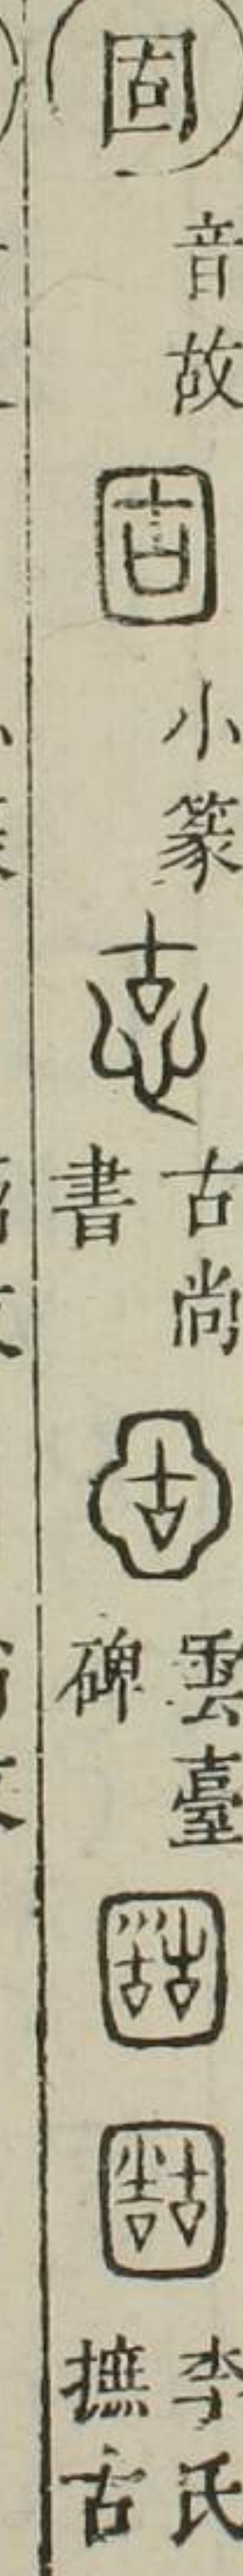 固
音故
固
小篆
古尚
書
雲臺
碑
李氏
摭古